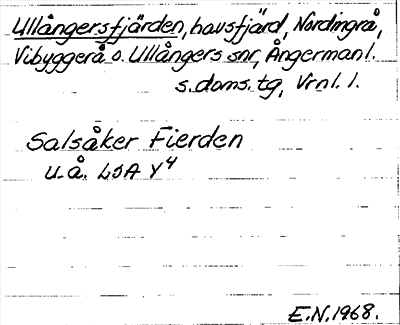 Ullångersfjärden, havsfjärd, Nordingrå,
Vibyggerå o. Ullångers snr, Ångermanl.
s. doms. tg, Vrnl. l.
Salsåker Fierden
u.å. LSA Y4
E.N. 1968.